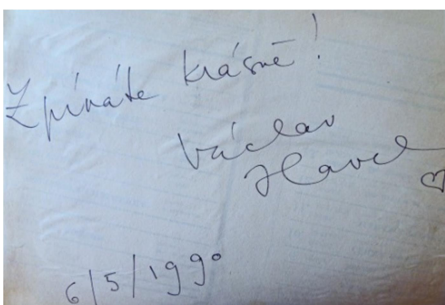 Zpíváte krásně!
Václav
Havel
6/5/1990